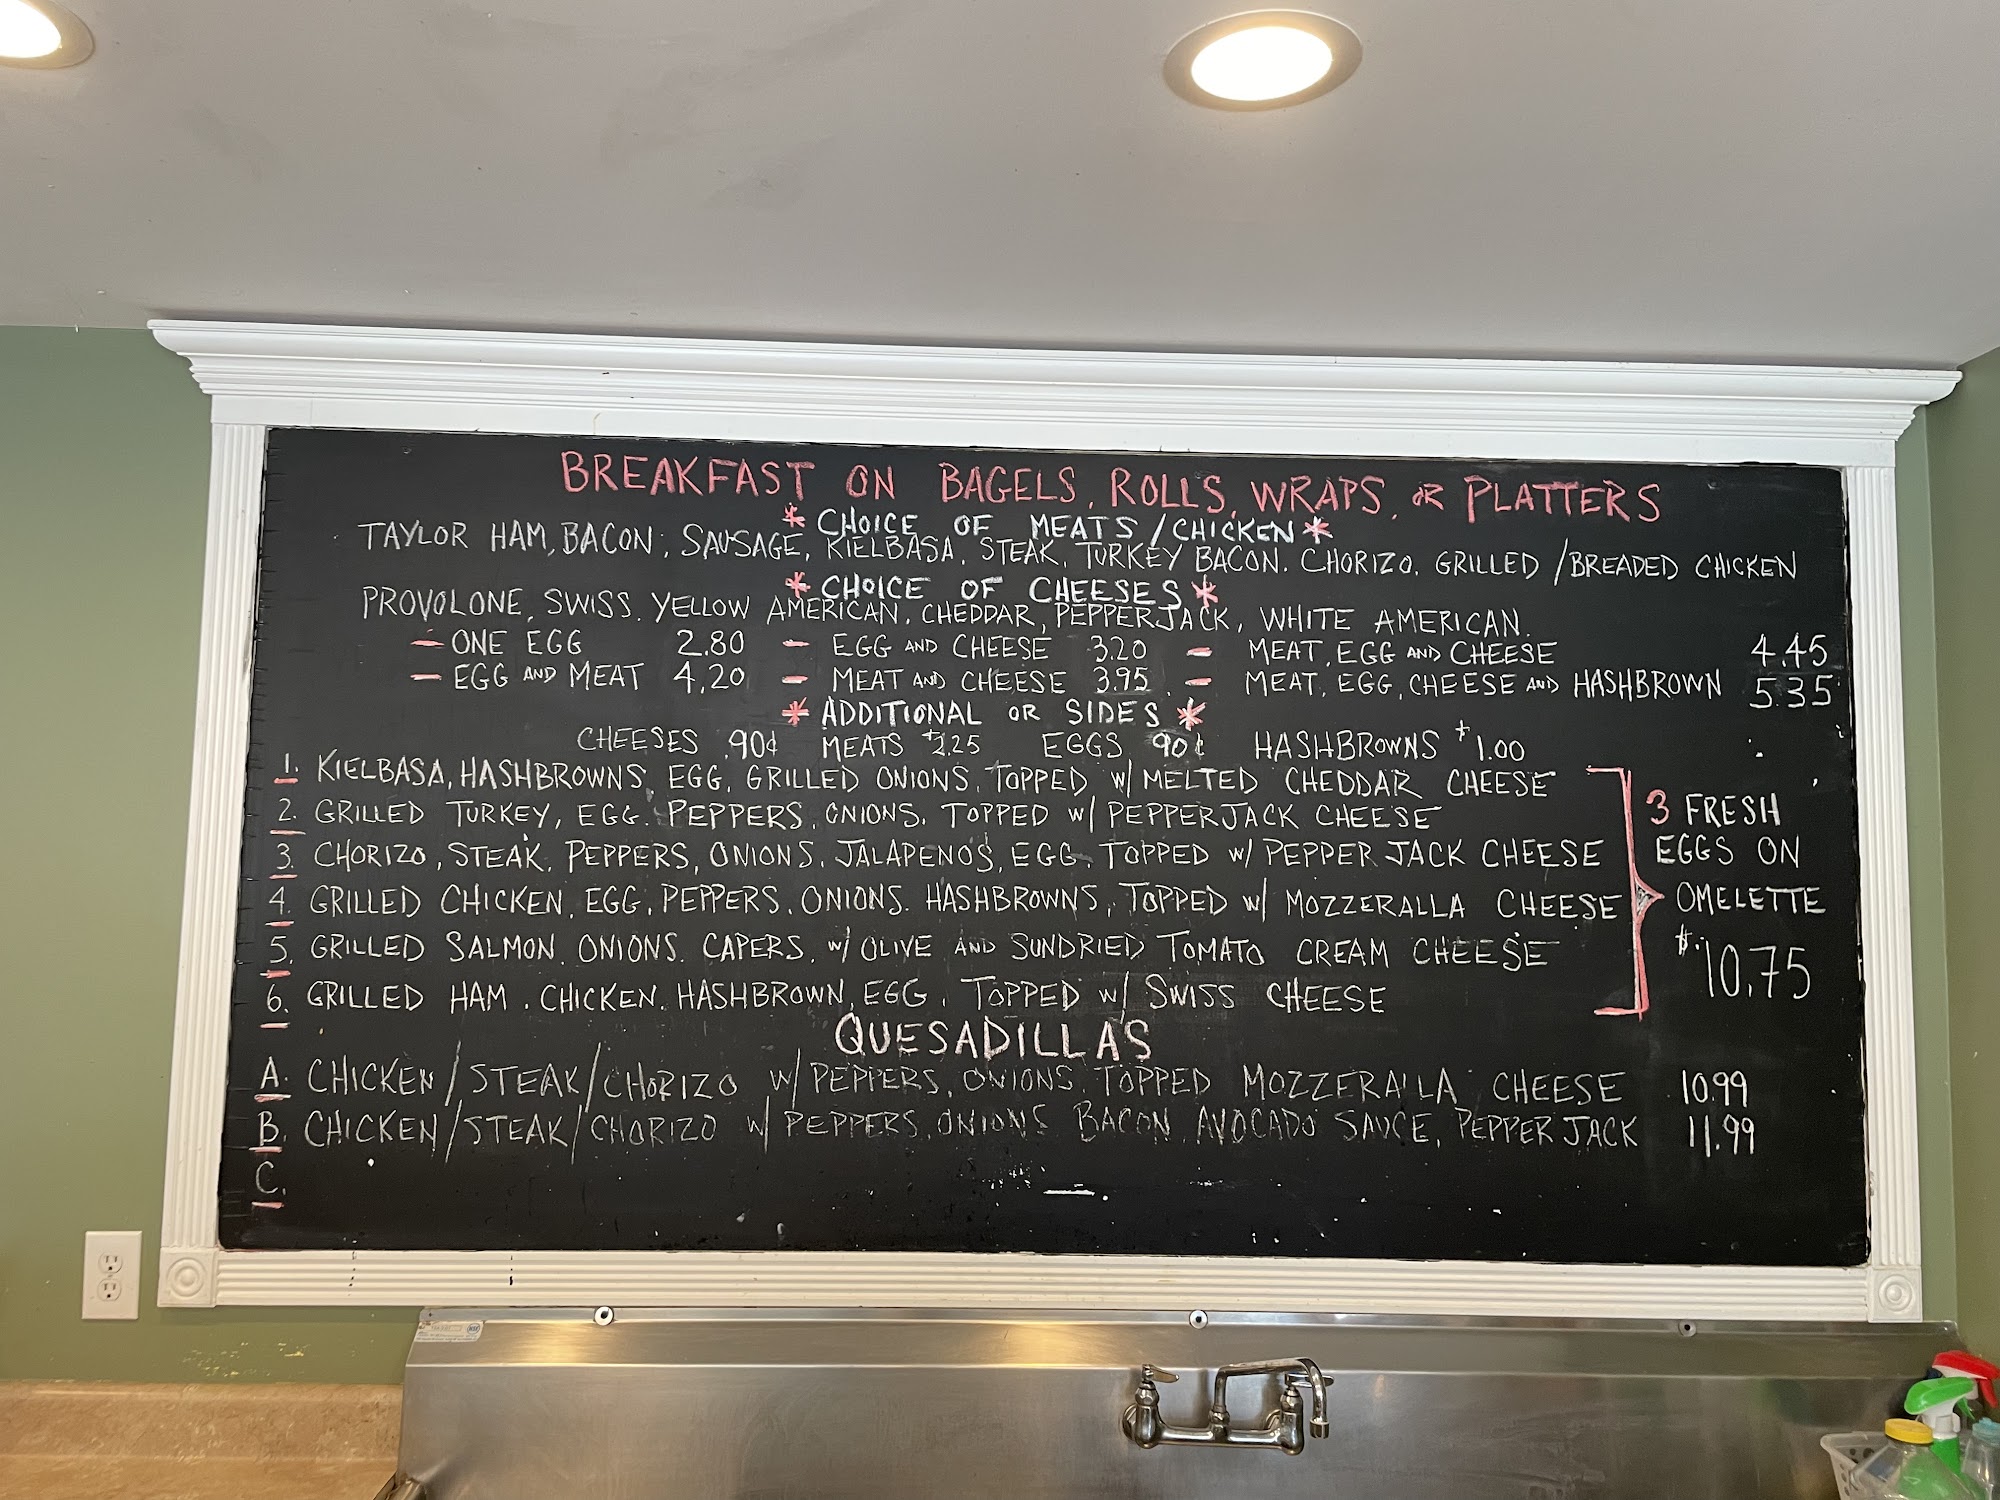 BREAKFAST ON BAGELS, ROLLS, WRAPS, OR PLATTERS
* CHOICE OF MEATS/CHICKEN *
TAYLOR HAM, BACON, SAUSAGE, KIELBASA, STEAK, TURKEY BACON. CHORIZO, GRILLED/BREADED CHICKEN
* CHOICE OF CHEESES *
PROVOLONE, SWISS. YELLOW AMERICAN. CHEDDAR, PEPPERJACK, WHITE AMERICAN.
- ONE EGG 2.80 - EGG AND CHEESE 3.20 - MEAT, EGG AND CHEESE 4.45
- EGG AND MEAT 4.20 - MEAT AND CHEESE 3.95 - MEAT, EGG, CHEESE AND HASHBROWN 5.35
* ADDITIONAL OR SIDES *
CHEESES .90¢ MEATS $2.25 EGGS .90¢ HASHBROWNS $1.00
1. KIELBASA, HASHBROWNS, EGG, GRILLED ONIONS, TOPPED W/ MELTED CHEDDAR CHEESE
2. GRILLED TURKEY, EGG. PEPPERS, ONIONS. TOPPED W/ PEPPERJACK CHEESE
3. CHORIZO, STEAK, PEPPERS, ONIONS, JALAPENOS, EGG, TOPPED W/ PEPPER JACK CHEESE
4. GRILLED CHICKEN, EGG, PEPPERS, ONIONS. HASHBROWNS, TOPPED W/ MOZZERALLA CHEESE
5. GRILLED SALMON. ONIONS. CAPERS, W/ OLIVE AND SUNDRIED TOMATO CREAM CHEESE
6. GRILLED HAM, CHICKEN, HASHBROWN, EGG, TOPPED W/ SWISS CHEESE
3 FRESH
EGGS ON
OMELETTE
$10.75
QUESADILLAS
A. CHICKEN/STEAK/CHORIZO W/ PEPPERS, ONIONS, TOPPED MOZZERALLA CHEESE 10.99
B. CHICKEN/STEAK/CHORIZO W/ PEPPERS, ONIONS BACON, AVOCADO SAUCE, PEPPER JACK 11.99
C.